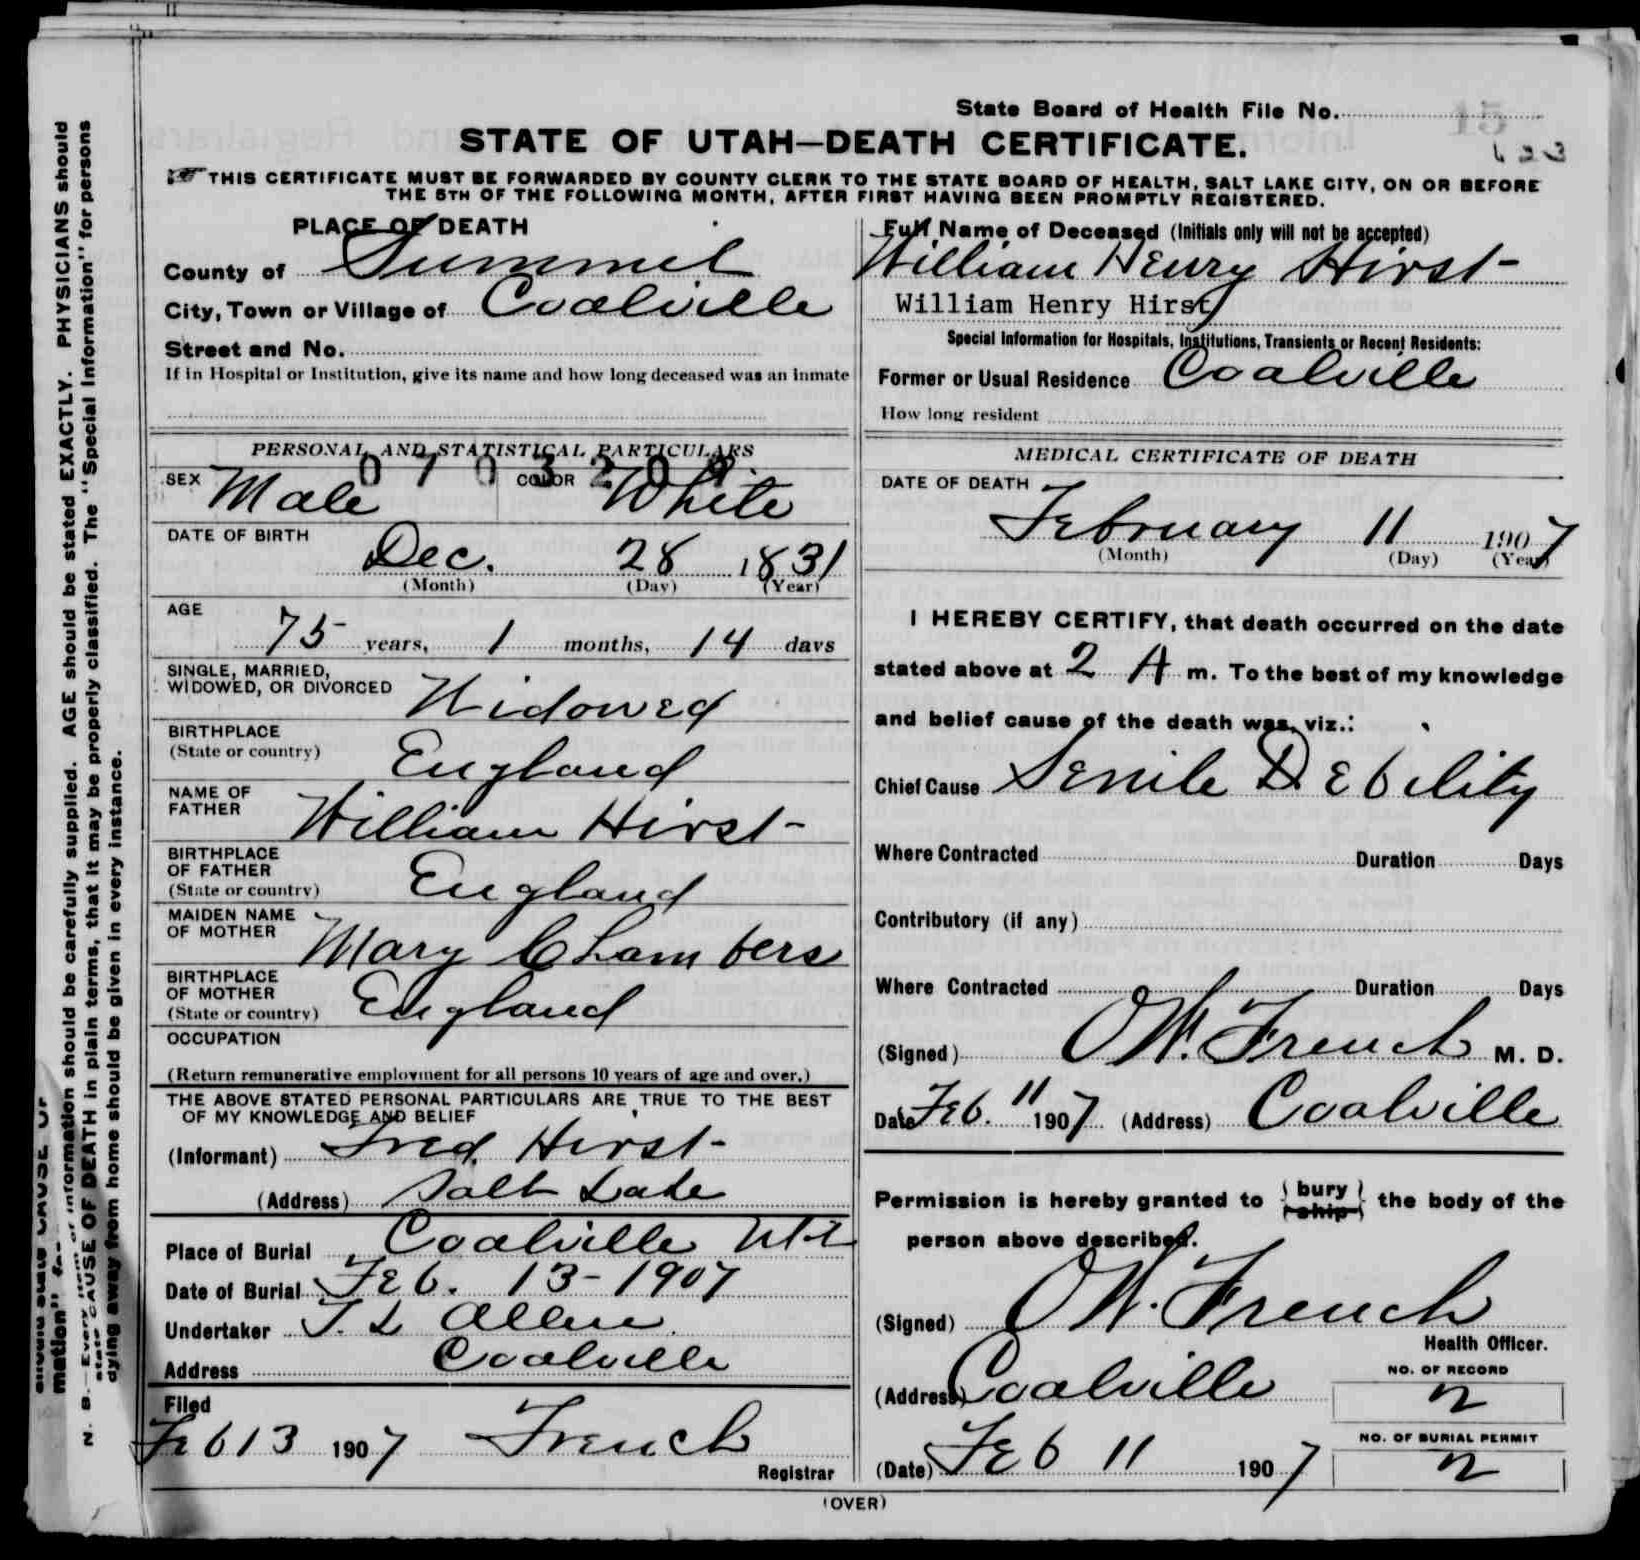 State Board of Health File No.
STATE OF UTAH—DEATH CERTIFICATE.
THIS CERTIFICATE MUST BE FORWARDED BY COUNTY CLERK TO THE STATE BOARD OF HEALTH, SALT LAKE CITY, ON OR BEFORE
THE 5TH OF THE FOLLOWING MONTH, AFTER FIRST HAVING BEEN PROMPTLY REGISTERED.
PLACE OF DEATH
County of Summit
City, Town or Village of Coalville
Street and No.
If in Hospital or Institution, give its name and how long deceased was an inmate
Full Name of Deceased (Initials only will not be accepted)
William Henry Hirst
William Henry Hirst
Special Information for Hospitals, Institutions, Transients or Recent Residents:
Former or Usual Residence Coalville
How long resident
PERSONAL AND STATISTICAL PARTICULARS
SEX Male COLOR White
DATE OF BIRTH
Dec. 28 1831
(Month) (Day) (Year)
AGE
75 years, 1 months, 14 days
SINGLE, MARRIED,
WIDOWED, OR DIVORCED Widowed
BIRTHPLACE
(State or country) England
NAME OF
FATHER William Hirst
BIRTHPLACE
OF FATHER
(State or country) England
MAIDEN NAME
OF MOTHER Mary Chambers
BIRTHPLACE
OF MOTHER
(State or country) England
OCCUPATION
(Return remunerative employment for all persons 10 years of age and over.)
THE ABOVE STATED PERSONAL PARTICULARS ARE TRUE TO THE BEST
OF MY KNOWLEDGE AND BELIEF
(Informant) Fred Hirst
(Address) Salt Lake
Place of Burial Coalville Utah
Date of Burial Feb. 13-1907
Undertaker T. L Allen
Address Coalville
Filed
Feb 13 1907 French
Registrar
MEDICAL CERTIFICATE OF DEATH
DATE OF DEATH
February 11 1907
(Month) (Day) (Year)
I HEREBY CERTIFY, that death occurred on the date
stated above at 2 A m. To the best of my knowledge
and belief cause of the death was, viz.:
Chief Cause Senile Debility
Where Contracted Duration Days
Contributory (if any)
Where Contracted Duration Days
(Signed) OW. French M. D.
Date Feb. 11 1907 (Address) Coalville
Permission is hereby granted to (bury) (ship) the body of the
person above described.
(Signed) OW. French
Health Officer.
(Address) Coalville
NO. OF RECORD
2
(Date) Feb 11 1907
NO. OF BURIAL PERMIT
2
(OVER)
N. B.—Every item of information should be carefully supplied. AGE should be stated EXACTLY. PHYSICIANS should
state CAUSE OF DEATH in plain terms, that it may be properly classified. The "Special Information" for persons
dying away from home should be given in every instance.